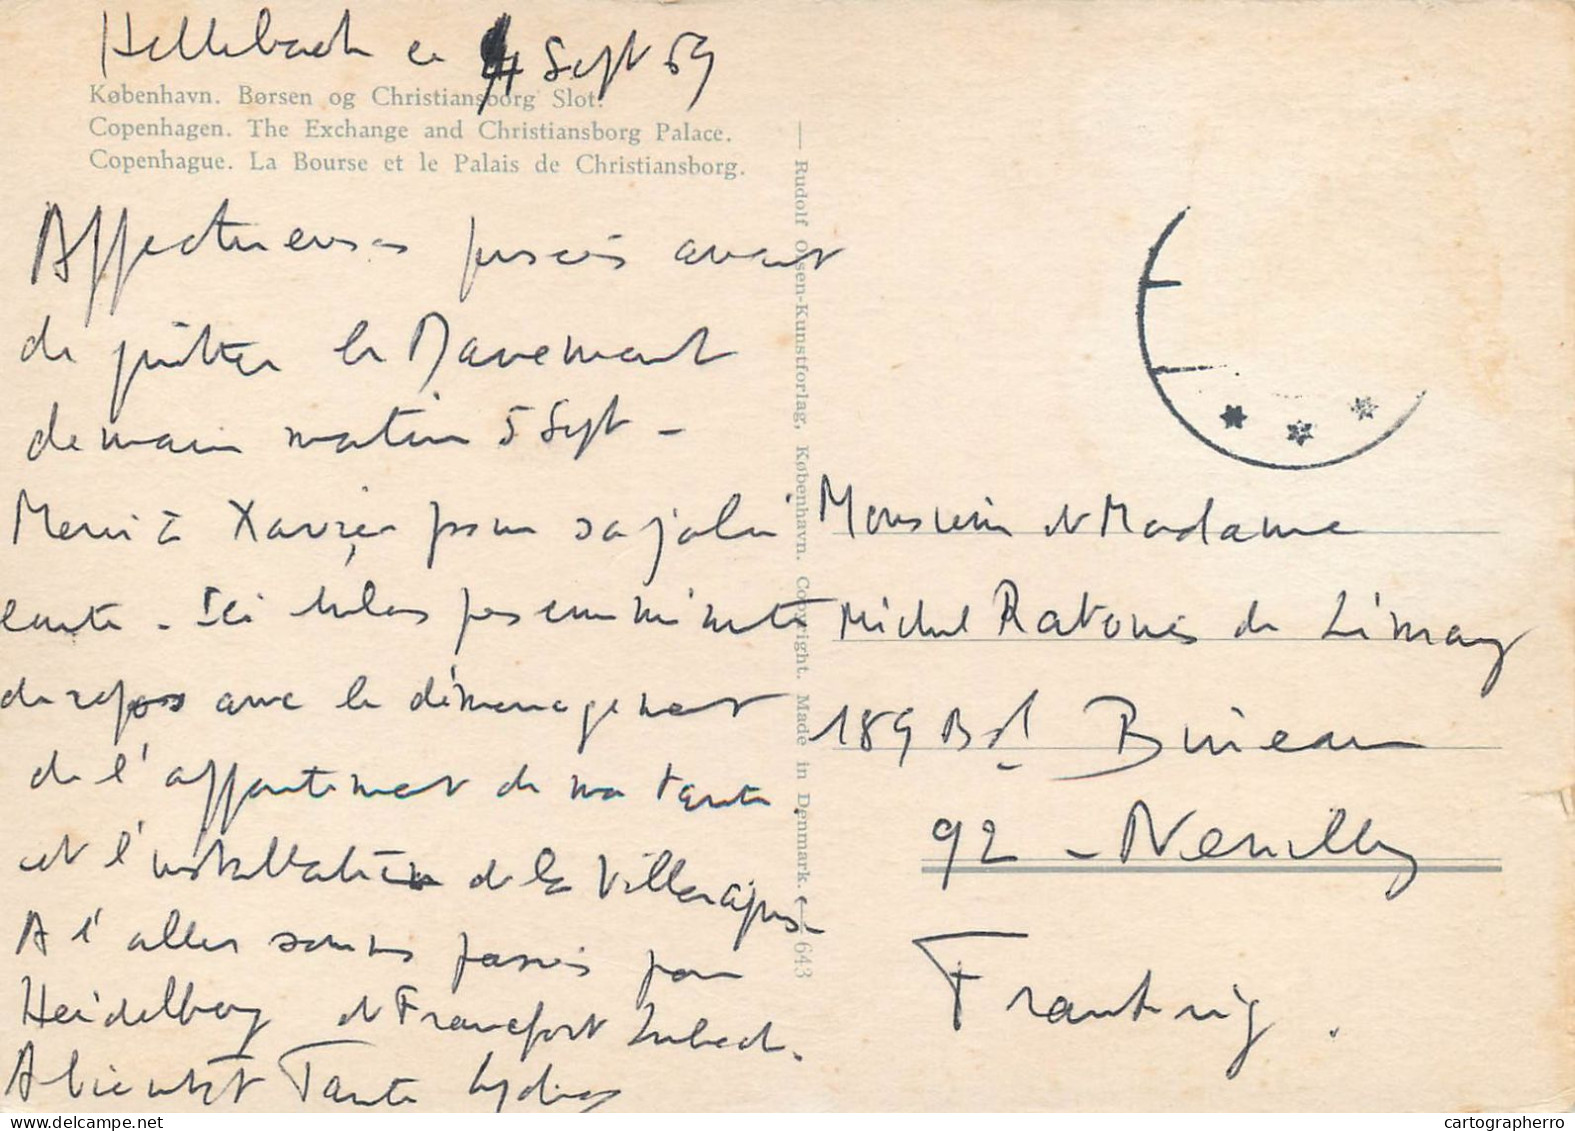 Hellebaek ce 4 Sept 69
København. Børsen og Christiansborg Slot.
Copenhagen. The Exchange and Christiansborg Palace.
Copenhague. La Bourse et le Palais de Christiansborg.
Affectueuses pensées avant
de quitter le Danemark
demain matin 5 Sept -
Merci à Xavier pour sa jolie
carte - Ici hélas pas une minute
de repos avec le déménagement
de l'appartement de ma tante
et l'installation de la Villa
A l'aller sommes passés par
Heidelberg et Francfort Lubeck.
A bientôt Tante Lydia
— Rudolf Olsen-Kunstforlag, København. Copyright. Made in Denmark. — 643
Monsieur et Madame
Michel de Limay
189 Bd Bineau
92 - Neuilly
Frankrig.
cartographerro